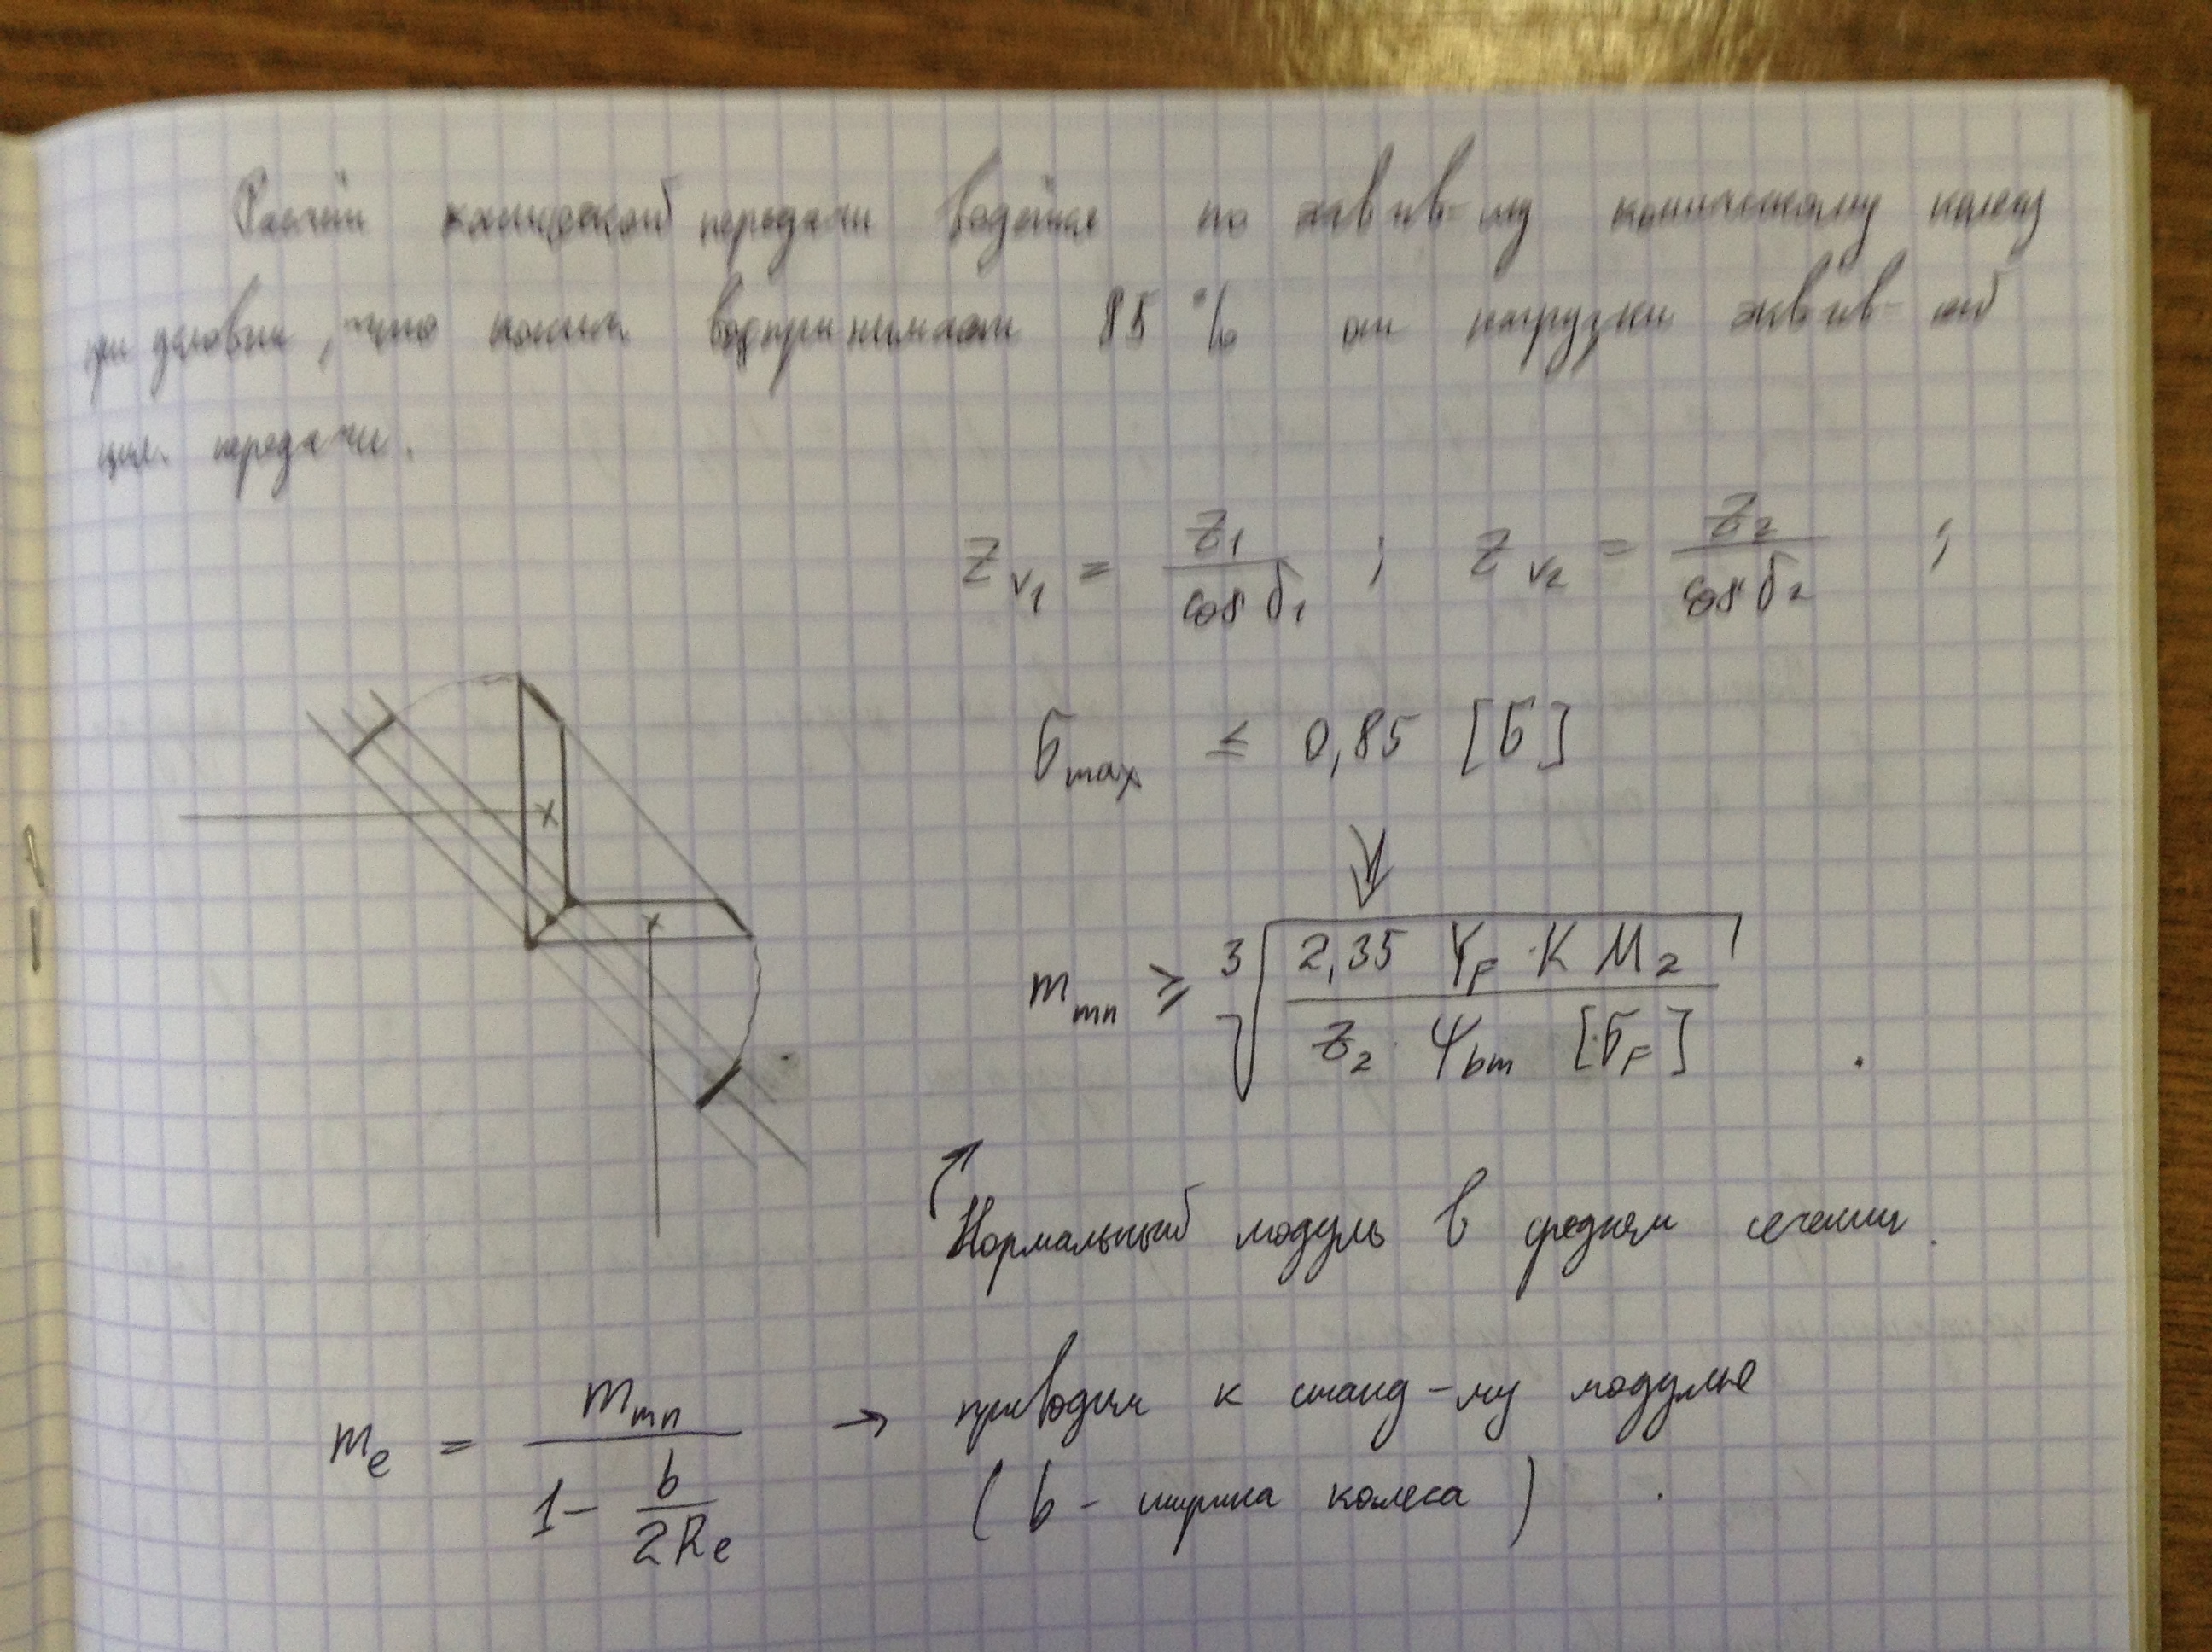 Расчёт конической передачи ведётся по экв ив-му коническому колесу
при условии, что конич. воспринимает 85 % от нагрузки экв ив-ой
цил. передачи.
Z_v1 = Z_1 / cos δ_1 ; Z_v2 = Z_2 / cos δ_2 ;
σ_max ≤ 0,85 [σ]
m_mn ≥ ∛( 2,35 Y_F · K M_2 / Z_2 · Ψ_bm [σ_F] )
Нормальный модуль в среднем сечении.
m_e = m_mn / (1 - b / 2R_e) → приводим к станд-му модулю
( b - ширина колеса )